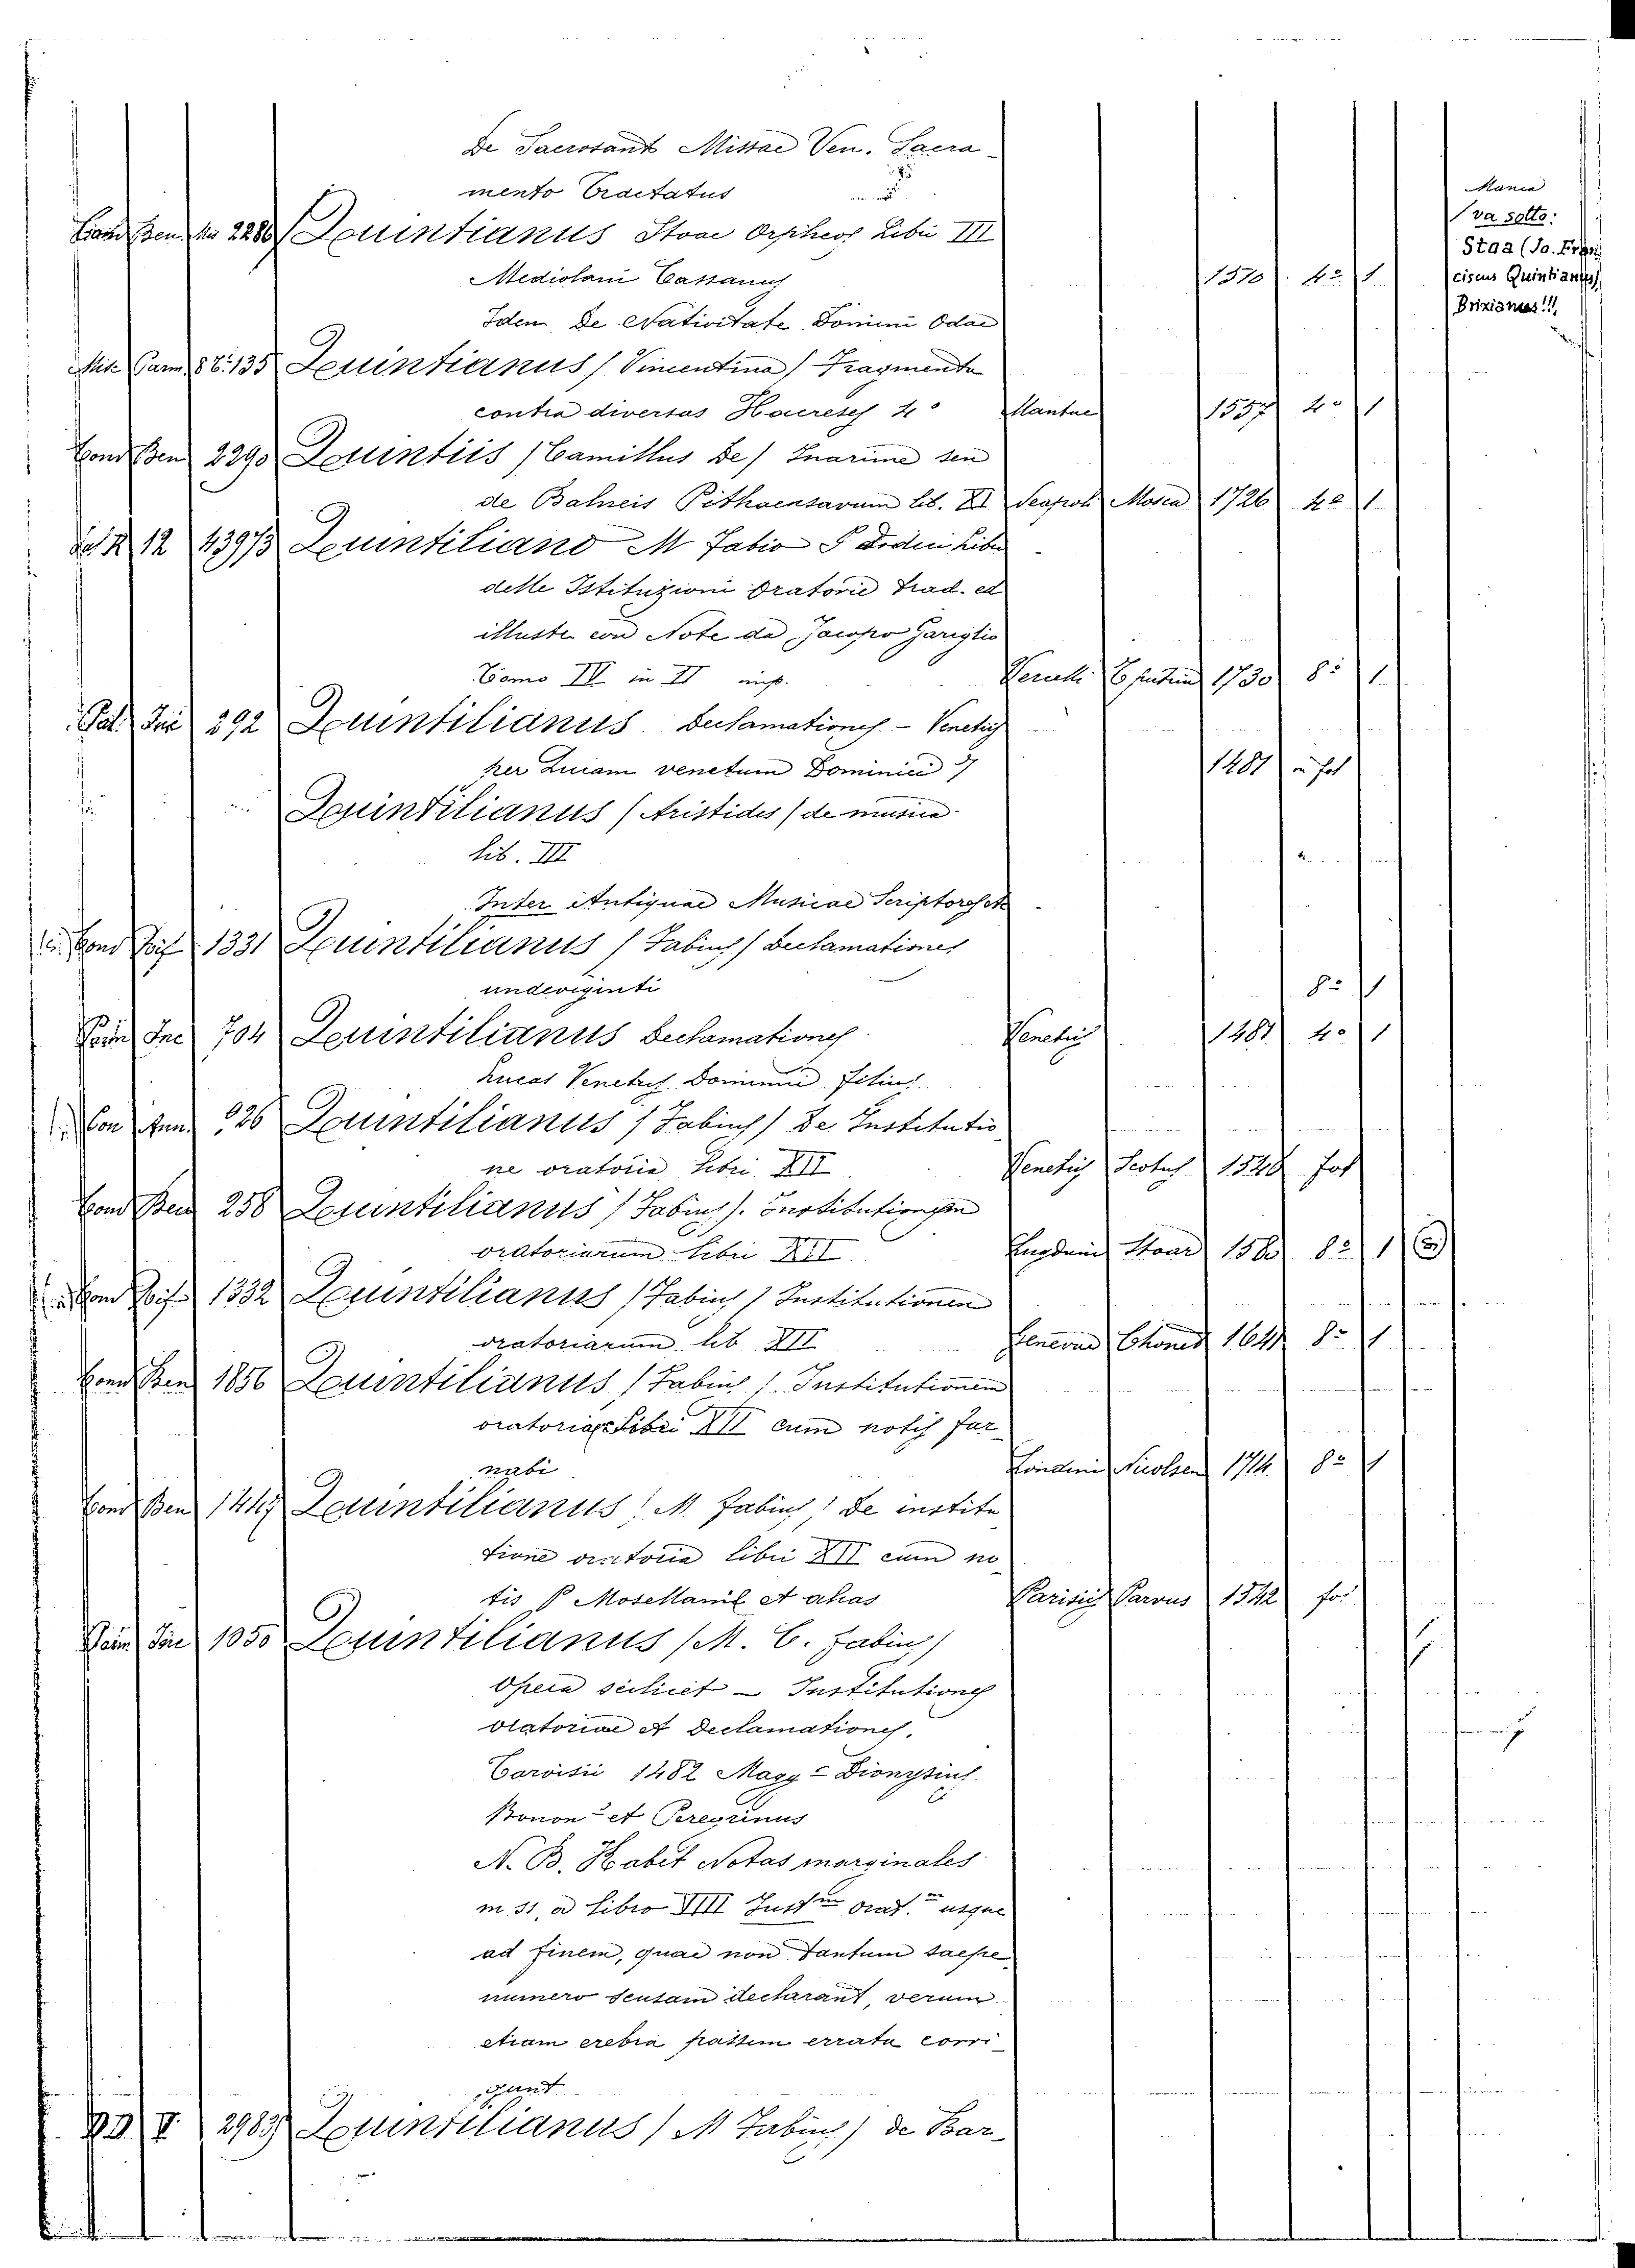 De Sacrosant Missae Ven. Sacra-
mento Tractatus
2280 Quintianus Stoae Orpheos Libri III
Mediolani Cassanus 1570 4° 1
Idem De Nativitate Domini Odae
Mania
va sotto:
Stoa (Jo. Fran
ciscus Quintianus)
Brixianus!!!
Misc Carm 86.135 Quintianus (Vincentina) Fragmenta
contra diversas Haereses 4° Mantue 1557 4° 1
Cond Ben 2290 Quintiis (Camillus de) Inarime seu
de Balneis Pithaecusarum lib. VI Neapoli Mosca 1726 4° 1
12 4397/3 Quintiliano M Fabio
delle Istituzioni Oratorie Trad. ed
illustr con Note da Jacopo Gariglio
Tomo IV in II Vercelli 1780 8° 1
Inc 292 Quintilianus. Declamationes - Venetiis
per Lucam venetum Dominici 1481 in fol
Quintilianus (Aristides) de musica
lib. III
Inter Antiquae Musicae Scriptores etc
Cond 1331 Quintilianus (Fabius) Declamationes
undeviginti 8° 1
Inc 704 Quintilianus Declamationes Venetiis 1481 4° 1
Lucas Venetus Dominici filius
Quintilianus (Fabius) De Institutio
ne oratoria Libri XII Venetiis Scotus 1548 fol
Cond Ben 258 Quintilianus (Fabius). Institutionum
oratoriarum Libri XII 8° 1
Cond 1332 Quintilianus (Fabius) Institutionum
oratoriarum lib XII Genevae Chouet 1641 8° 1
Cond Ben 1856 Quintilianus (Fabius). Institutionum
oratoriar Libri XII cum notis Far
nabi Londini Nicolson 1714 8° 1
Cond Ben 1447 Quintilianus (M. Fabius) De institu
tione oratoria libri XII cum no
tis P Mosellani et alias Parisiis Parvus 1542 fol
Inc 1050 Quintilianus (M. C. Fabius)
Opera scilicet - Institutiones
Oratoriae et Declamationes.
Tarvisii 1482 Mag - Dionysius
Bonon - et Peregrinus
N. B. Habet Notas marginales
m. ss. a Libro VIIII Instm orat. usque
ad finem, quae non tantum saepe
numero sensam declarant, verum
etiam crebra passim errata corri
gunt
V 2983 Quintilianus (M Fabius) de Bar-